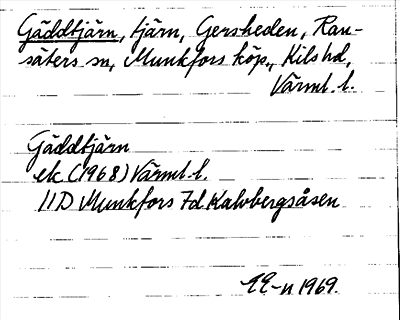 Gäddtjärn, tjärn, Gersheden, Ran-
säters sn, Munkfors köp., Kils hd,
Värml. l.
Gäddtjärn
ek. (1968) Värml. l.
11D Munkfors 7d Kalvbergsåsen
1969.